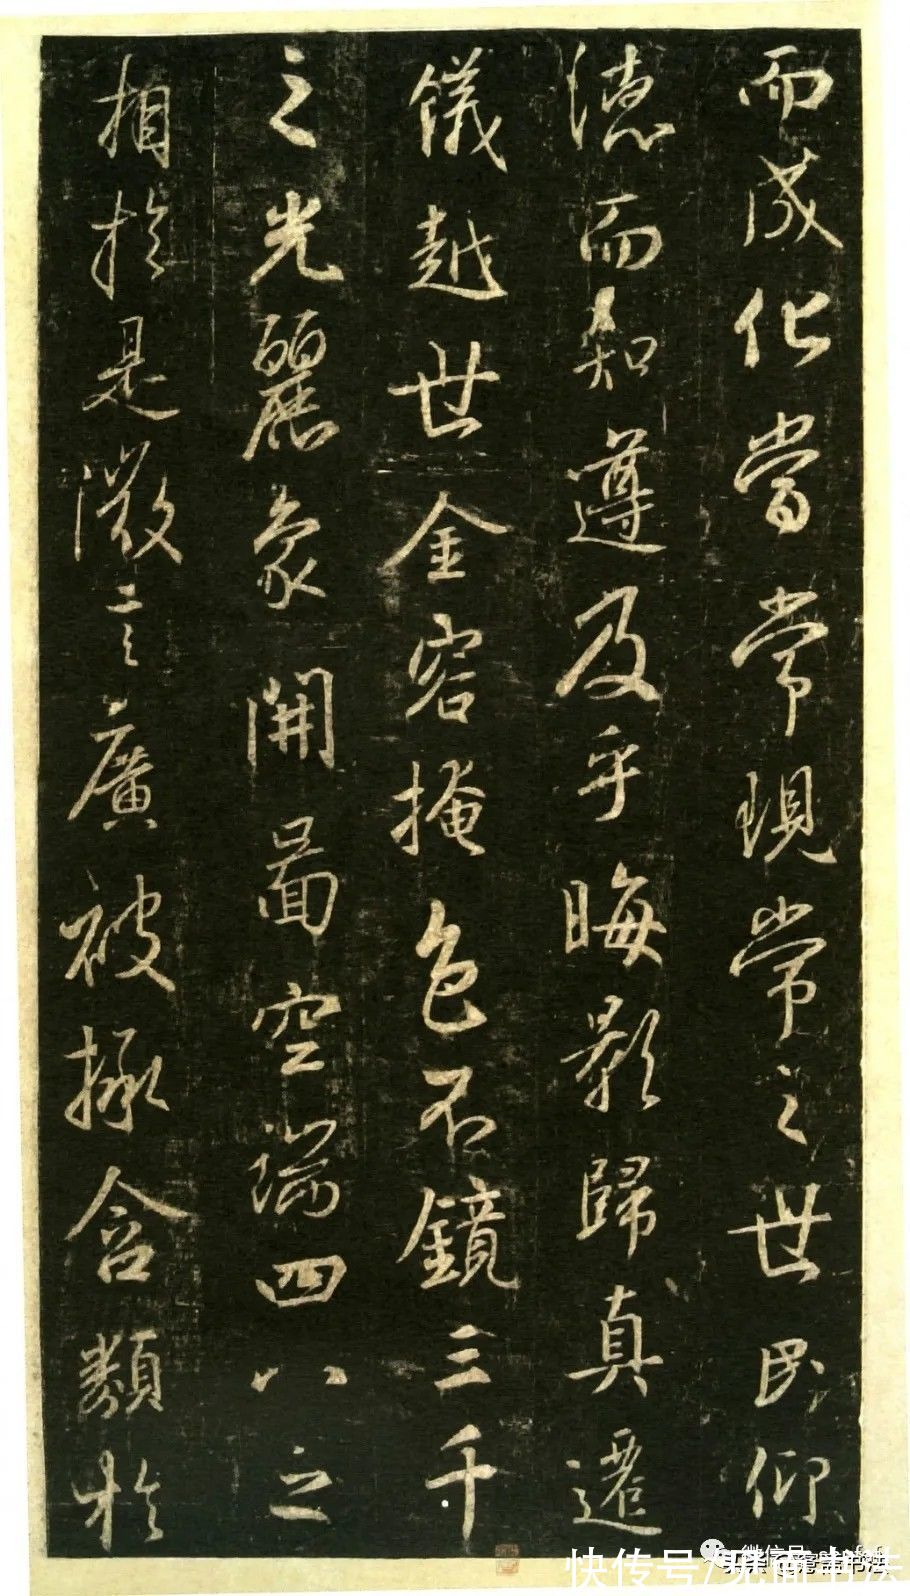 而成化當常現常之世民仰
德而知遵及乎晦影歸真遷
儀越世金容掩色不鏡三千
之光麗象開圖空端四八之
相於是微言廣被拯含類於
快传号/
书法